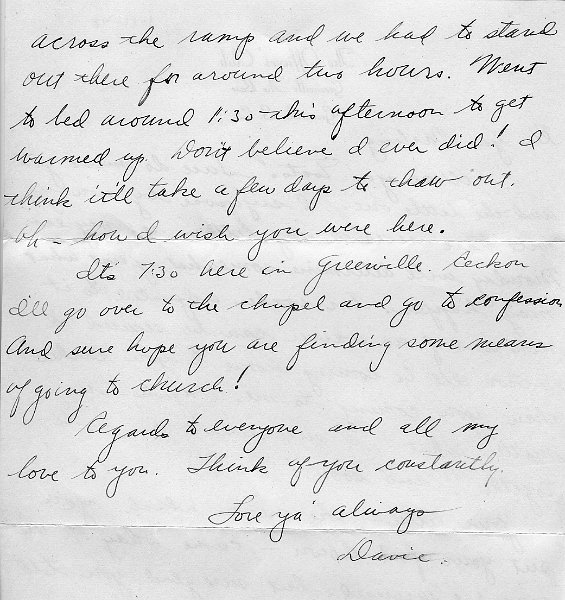 across the ramp and we had to stand
out there for around two hours. Went
to bed around 1:30 this afternoon to get
warmed up. Don't believe I ever did! I
think it'll take a few days to thaw out.
Oh - how I wish you were here.
It's 7:30 here in Greenville. Reckon
I'll go over to the chapel and go to confession
And sure hope you are finding some means
of going to church!
Regards to everyone and all my
love to you. Think of you constantly.
Love ya' always
Davie.